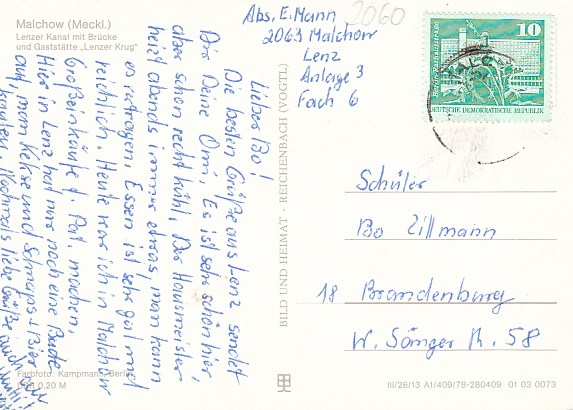 Malchow (Meckl.)
Lenzer Kanal mit Brücke
und Gaststätte „Lenzer Krug"
Abs. E. Mann
2063 Malchow
Lenz
Anlage 3
Fach 6
2060
10
DEUTSCHE DEMOKRATISCHE REPUBLIK
Lieber Bo!
Die besten Grüße aus Lenz sendet
Dir Deine Omi, Es ist sehr schön hier,
aber schon recht kühl. Der Hausmeister
heizt abends immer etwas, man kann
es ertragen. Essen ist sehr gut und
reichlich. Heute war ich in Malchow
Großeinkäufe f. Pat. machen.
Hier in Lenz hat nur noch eine Bude
auf, man Kekse und Schnaps + Bier
kaufen. Nochmals liebe Grüße auch
BILD UND HEIMAT · REICHENBACH (VOGTL)
Schüler
Bo Zillmann
18 Brandenburg
W. Sänger Str. 58
Farbfoto: Kampmann, Berlin
0,20 M
III/26/13 A1/409/78-280409 01 03 0073